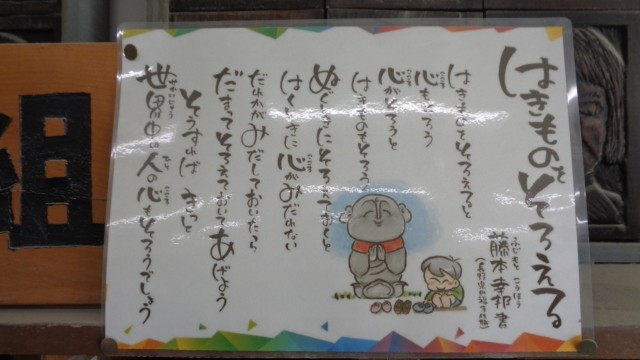 はきものをそろえる
ふじもと こうほう
藤本幸邦 書
はきものをそろえると
こころ
心もそろう
こころ
心がそろうと
はきものもそろう
ぬぐときにそろえておくと
はくときに心がみだれない
こころ
だれかがみだしておいたら
だまってそろえておいてあげよう
そうすればきっと
世界中の人の心もそろうでしょう
せかいじゅう ひと こころ
組